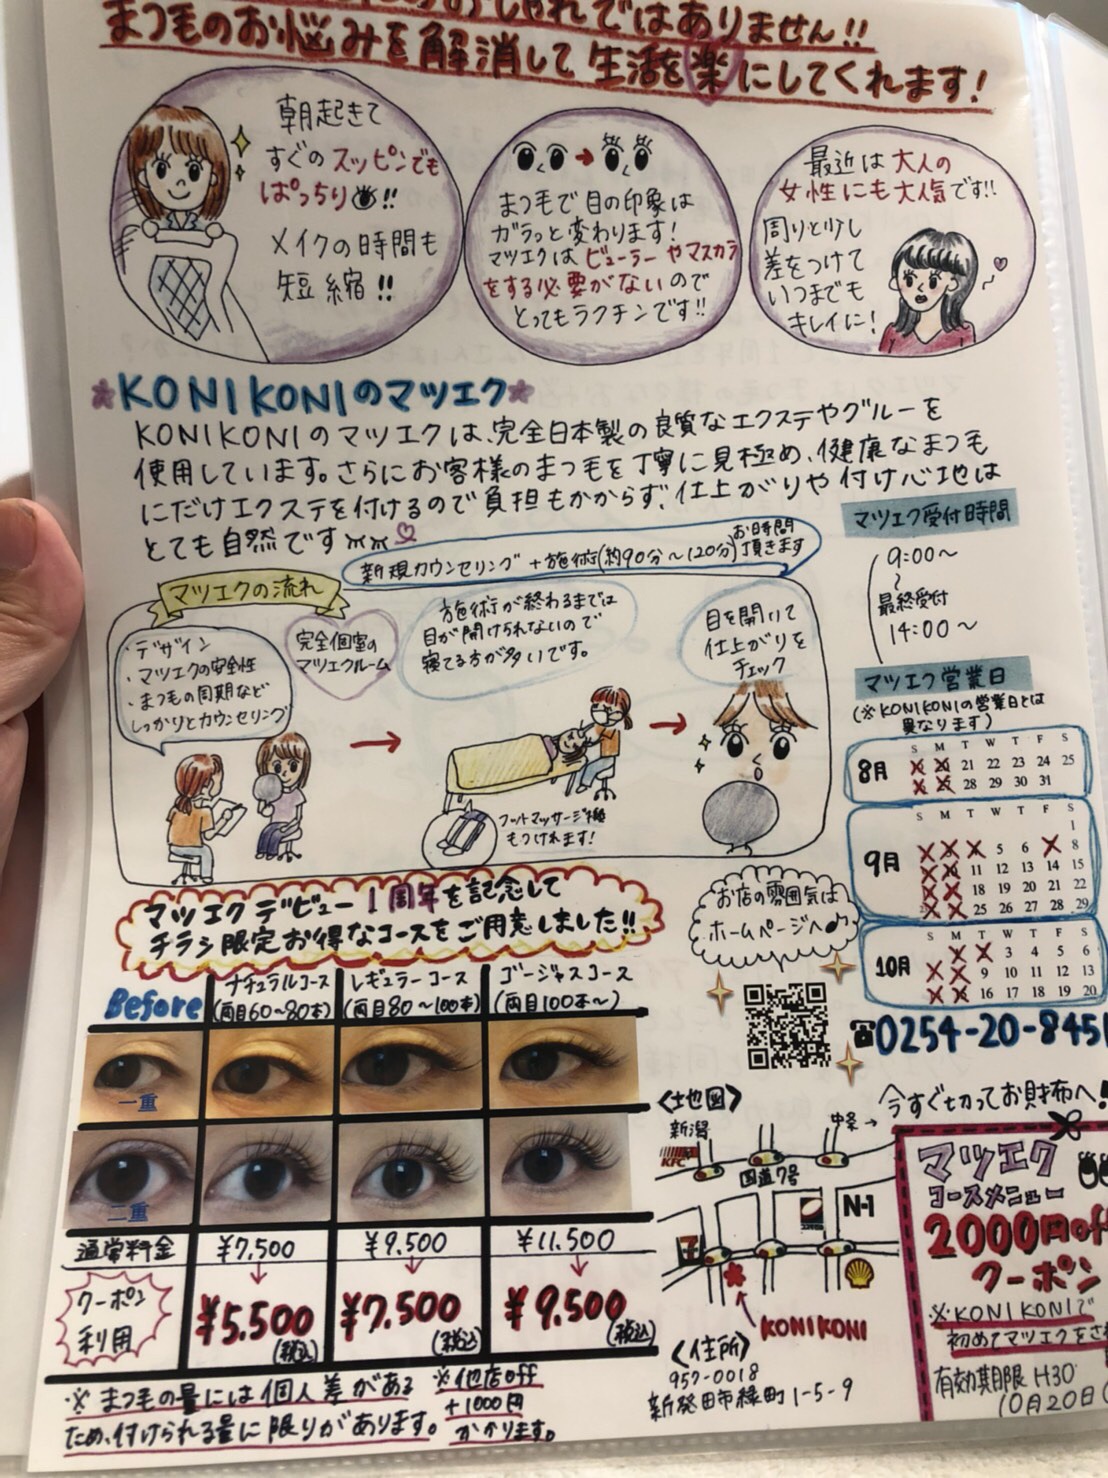 おしゃれではありません!!
まつ毛のお悩みを解消して生活を楽にしてくれます!
朝起きて
すぐのスッピンでも
ぱっちり!!
メイクの時間も
短縮!!
まつ毛で目の印象は
ガラっと変わります!
マツエクはビューラーやマスカラ
をする必要がないので
とってもラクチンです!!
最近は大人の
女性にも大人気です!!
周りと少し
差をつけて
いつまでも
キレイに!
KONIKONIのマツエク
KONIKONIのマツエクは、完全日本製の良質なエクステやグルーを
使用しています。さらにお客様のまつ毛を丁寧に見極め、健康なまつ毛
にだけエクステを付けるので負担もかからず、仕上がりや付け心地は
とても自然です
新規カウンセリング+施術(約90分~120分)お時間頂きます
マツエクの流れ
・デザイン
・マツエクの安全性
・まつ毛の周期など
しっかりとカウンセリング
完全個室の
マツエクルーム
施術が終わるまでは
目が開けられないので
寝てる方が多いです。
フットマッサージ機
もつけれます!
目を開いて
仕上がりを
チェック
マツエク受付時間
9:00~
~
最終受付
14:00~
マツエク営業日
(※KONIKONIの営業日とは
異なります)
8月
S M T W T F S
21 22 23 24 25
28 29 30 31
9月
S M T W T F S
1
5 6 8
11 12 13 14 15
18 19 20 21 22
25 26 27 28 29
10月
S M T W T F S
3 4 5 6
9 10 11 12 13
16 17 18 19 20
マツエクデビュー1周年を記念して
チラシ限定お得なコースをご用意しました!!
お店の雰囲気は
ホームページへ♪
0254-20-8451
Before
ナチュラルコース
(両目60~80本)
レギュラーコース
(両目80~100本)
ゴージャスコース
(両目100本~)
一重
二重
通常料金 ¥7,500 ¥9,500 ¥11,500
クーポン
利用
¥5,500
(税込)
¥7,500
(税込)
¥9,500
(税込)
※まつ毛の量には個人差がある
ため、付けられる量に限りがあります。
※他店off
+1000円
かかります。
<地図>
新潟
中条→
KFC
国道7号
N-1
KONIKONI
<住所>
957-0018
新発田市緑町1-5-9
今すぐ切ってお財布へ!
マツエク
コースメニュー
2000円off
クーポン
※KONIKONIで
初めてマツエクをされ
有効期限 H30
10月20日